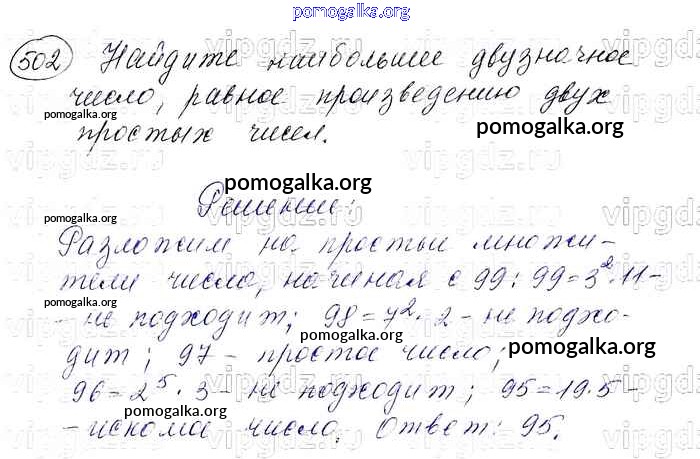 pomogalka.org
502 Найдите наибольшее двузначное
число, равное произведению двух
простых чисел.
pomogalka.org
pomogalka.org
pomogalka.org
Решение:
pomogalka.org
Разложим на простые множи-
тели число, начиная с 99: 99=3²·11-
pomogalka.org
- не подходит; 98=7²·2 - не подхо-
pomogalka.org
pomogalka.org
дит; 97 - простое число;
96=2⁵·3 - не подходит; 95=19·5-
pomogalka.org
pomogalka.org
- искомое число. Ответ: 95.
pomogalka.org